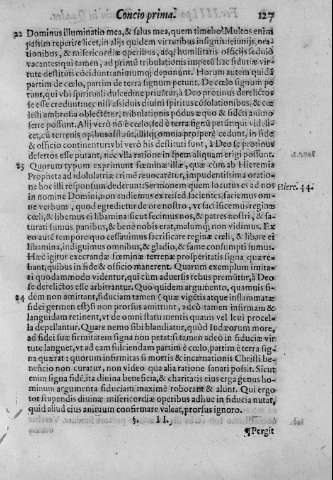 Concio prima. 127
22 Dominus illuminatio mea, & salus mea, quem timebo? Multos enim
passim reperire licet, in alijs quidem virtutibus insignes, ieiunijs, ora-
tionibus, & misericordiæ operibus, atq; humilitatis officijs sedulò
vacantes: qui tamen, ad primũ tribulationis impetũ hac fiduciæ vir-
tute destituti concidunt animumq; deponunt. Horum autem quidã
partim de cœlo, partim de terra signum petunt. De cœlo signum pe-
tunt, qui vbi spiritualis dulcedine priuãtur, à Deo prorsus derelictos
se esse credunt: nec nisi assiduis diuini spiritus cõsolationibus, & cœ-
lesti ambrosia oblectẽtur, tribulationis põdus æquo & fideli animo
ferre possunt. Alij verò nõ è cœlo, sed è terra signũ petũt: qui vide-
licet, cũ terrenis opibus affluũt, illisq; omnia prosperè cedunt, in fide
& officio continentur: vbi verò his destituti sunt, à Deo se protinus
desertos esse putant, nec vlla ratione in spem aliquam erigi possunt.
23 Quorum typum exprimunt fœminæ illæ, quæ cùm ab Hieremia
Propheta ad idololatriæ crimẽ reuocarẽtur, impudentissima oratio-
ne hoc illi responsum dederunt: Sermonem quem locutus es ad nos Hierc. 44.
in nomine Domini, non audiemus ex te: sed facientes faciemus om-
ne verbum, quod egredietur de ore nostro, vt sacrificemus reginæ
cœli, & libemus ei libamina sicut fecimus nos, & patres nostri, & sa-
turati sumus panibus, & benè nobis erat, malumq; non vidimus. Ex
eo autẽ tempore quo cessauimus sacrificare reginæ cœli, & libare ei
libamina, indigemus omnibus, & gladio, & fame consumpti sumus.
Hæc igitur execrandæ fœminæ terrenæ prosperitatis signa quære-
bant, quibus in fide & officio manerent. Quarum exemplum imita-
ri quodammodo videntur, qui cùm aduersis rebus premũtur, à Deo
se derelictos esse arbitrantur. Quo quidem argumento, quamuis fi-
24 dem non amittant, fiduciam tamen (quæ vigẽtis atque inflammatæ
fidei germen est) si non prorsus amittunt, adeò tamen infirmam &
languidam retinent, vt de omni statu mentis quauis vel leui procel-
la depellantur. Quare nemo sibi blandiatur, quòd Iudæorum more,
ad fidei suæ firmitatem signa non petat: si tamen adeò in fiduciæ vir-
tute languet, vt ad eam suscitandam partim è cœlo, partim è terra sig-
na quærat: quorum infirmitas si mortis & incarnationis Christi be-
neficio non curatur, non video qua alia ratione sanari possit. Sicut
enim signa fidẽ, ita diuina beneficia, & charitatis eius erga genus ho-
minum argumenta fiduciam maximè roborant & alunt. Qui ergo
tot stupendis diuinæ misericordiæ operibus adhuc in fiducia nutat,
quid aliud eius animum confirmare valeat, prorsus ignoro.
§. II.
¶Pergit